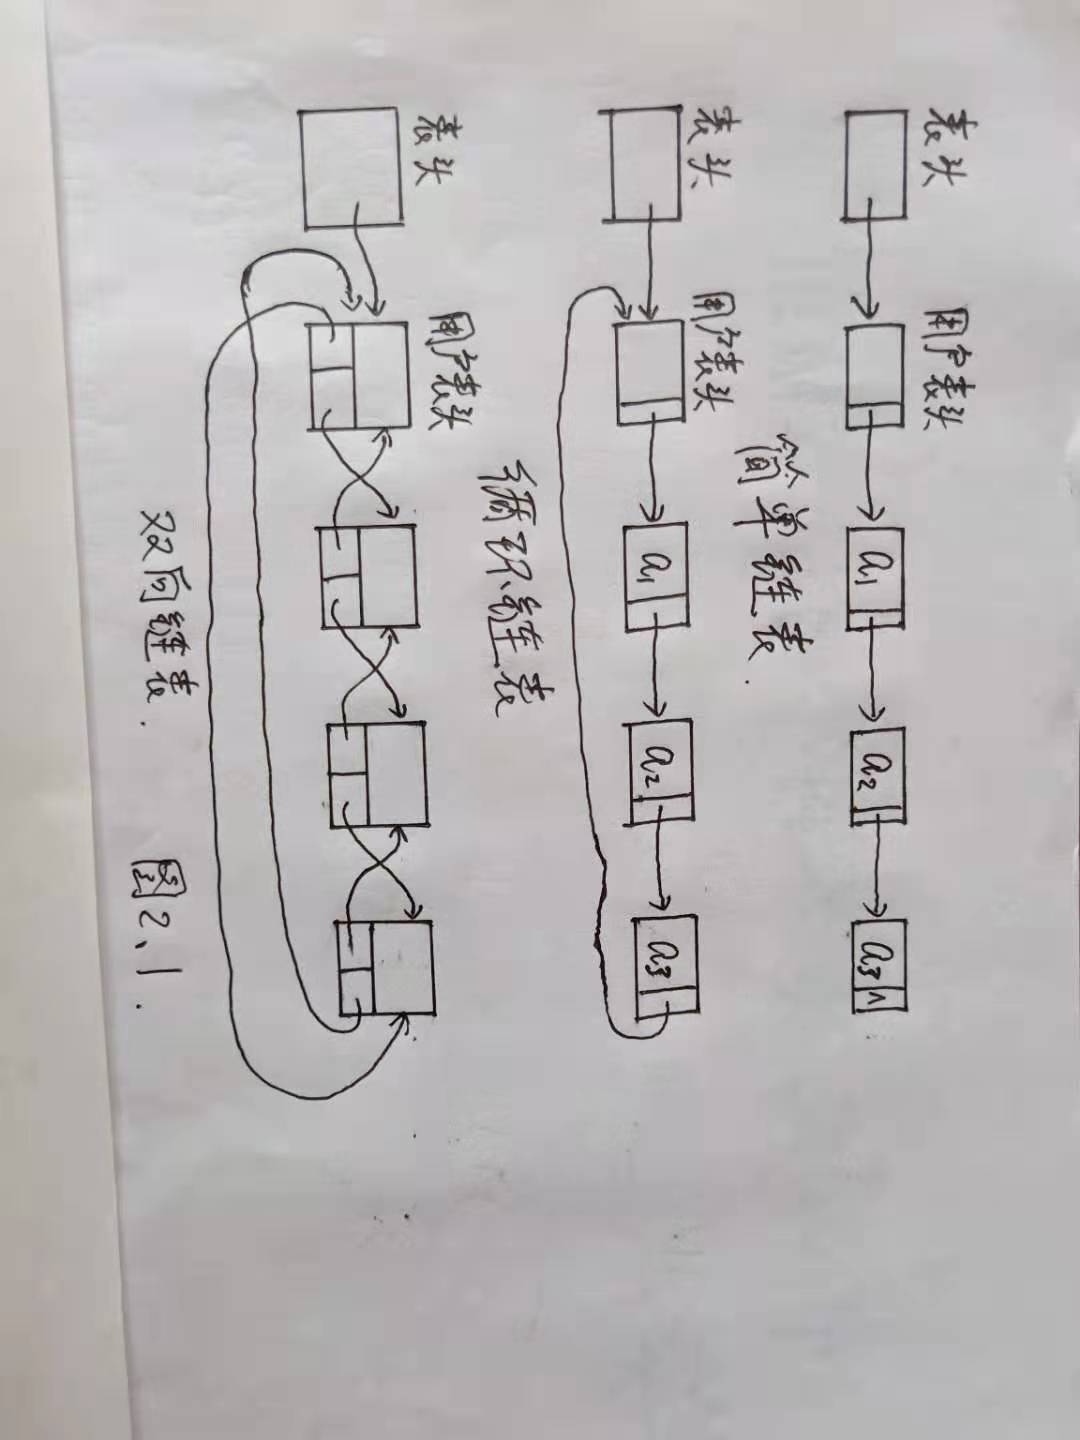 表头 用户表头
a1 a2 a3 ∧
简单链表.
表头 用户表头
a1 a2 a3
循环链表
表头 用户表头
双向链表. 图2、1.